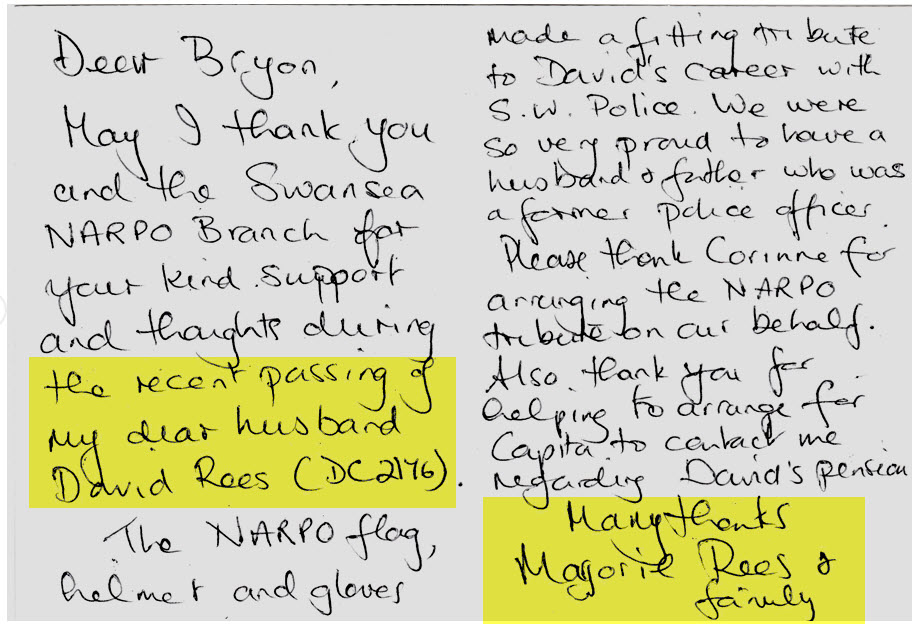 Dear Bryon,
May I thank you
and the Swansea
NARPO Branch for
your kind support
and thoughts during
the recent passing of
my dear husband
David Rees (DC2176).
The NARPO flag,
helmet and gloves
made a fitting tribute
to David's career with
S.W. Police. We were
so very proud to have a
husband & father who was
a former police officer.
Please thank Corinne for
arranging the NARPO
tribute on our behalf.
Also thank you for
helping to arrange for
Capita to contact me
regarding David's pension
Many thanks
Marjorie Rees &
family